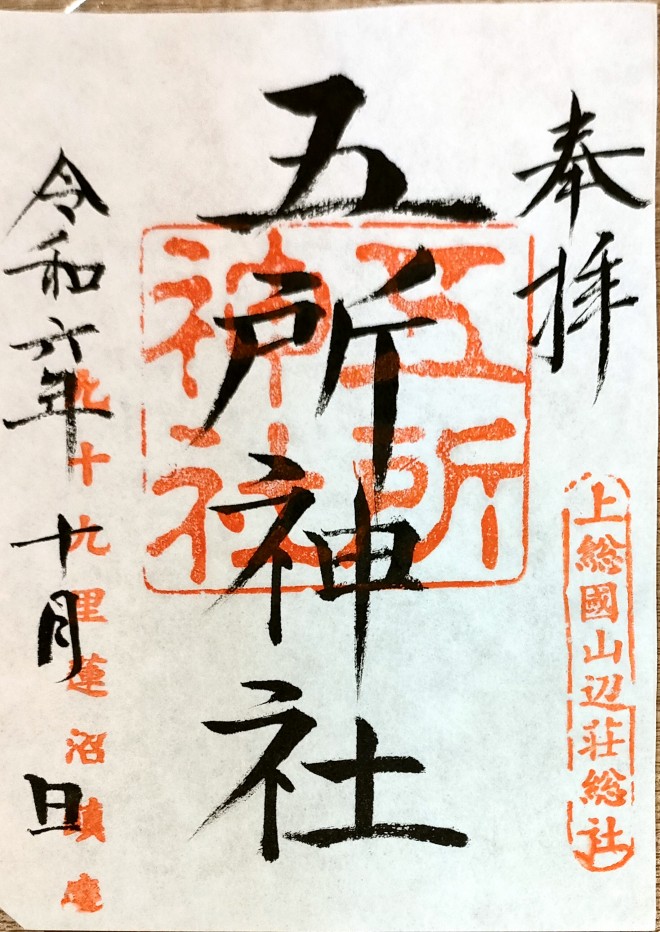 奉拝
上総國山辺荘総社
五所神社
五所
神社
令和六年十月旦
九十九里蓮沼鎮座